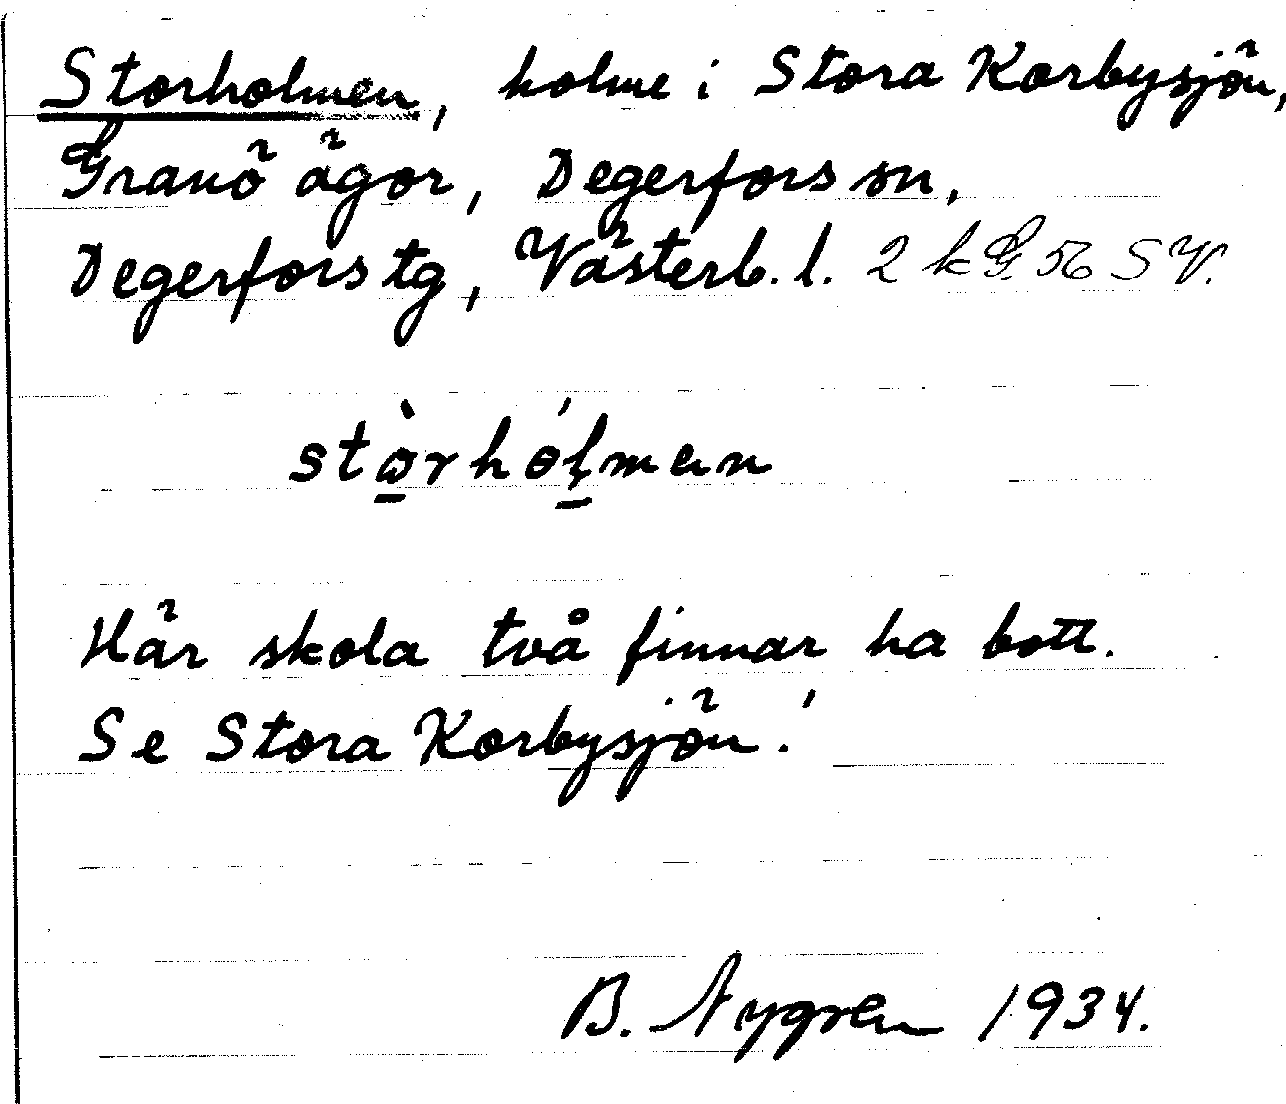 Storholmen, holme i Stora Korbysjön,
Granö ägor, Degerfors sn,
Degerfors tg, Västerb. l. 2 k G 56 S V.
stòrhólmen
Här skola två finnar ha bott.
Se Stora Korbysjön!
B. Nygren 1934.